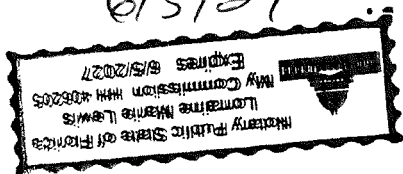 6/5/27
Notary Public State of Florida
Lorraine Marie Lewis
My Commission HH 406205
Expires 6/5/2027